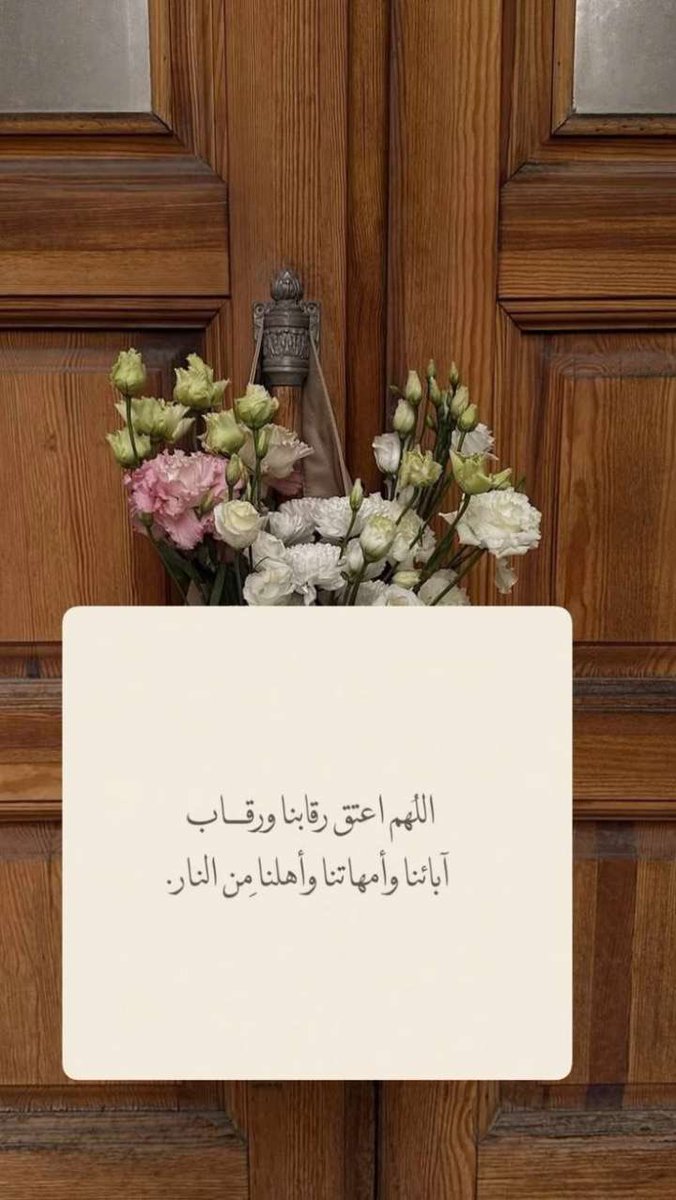 اللَهم اعتق رقابنا ورقـــاب
آبائنا وأمهاتنا وأهلنا مِن النار.